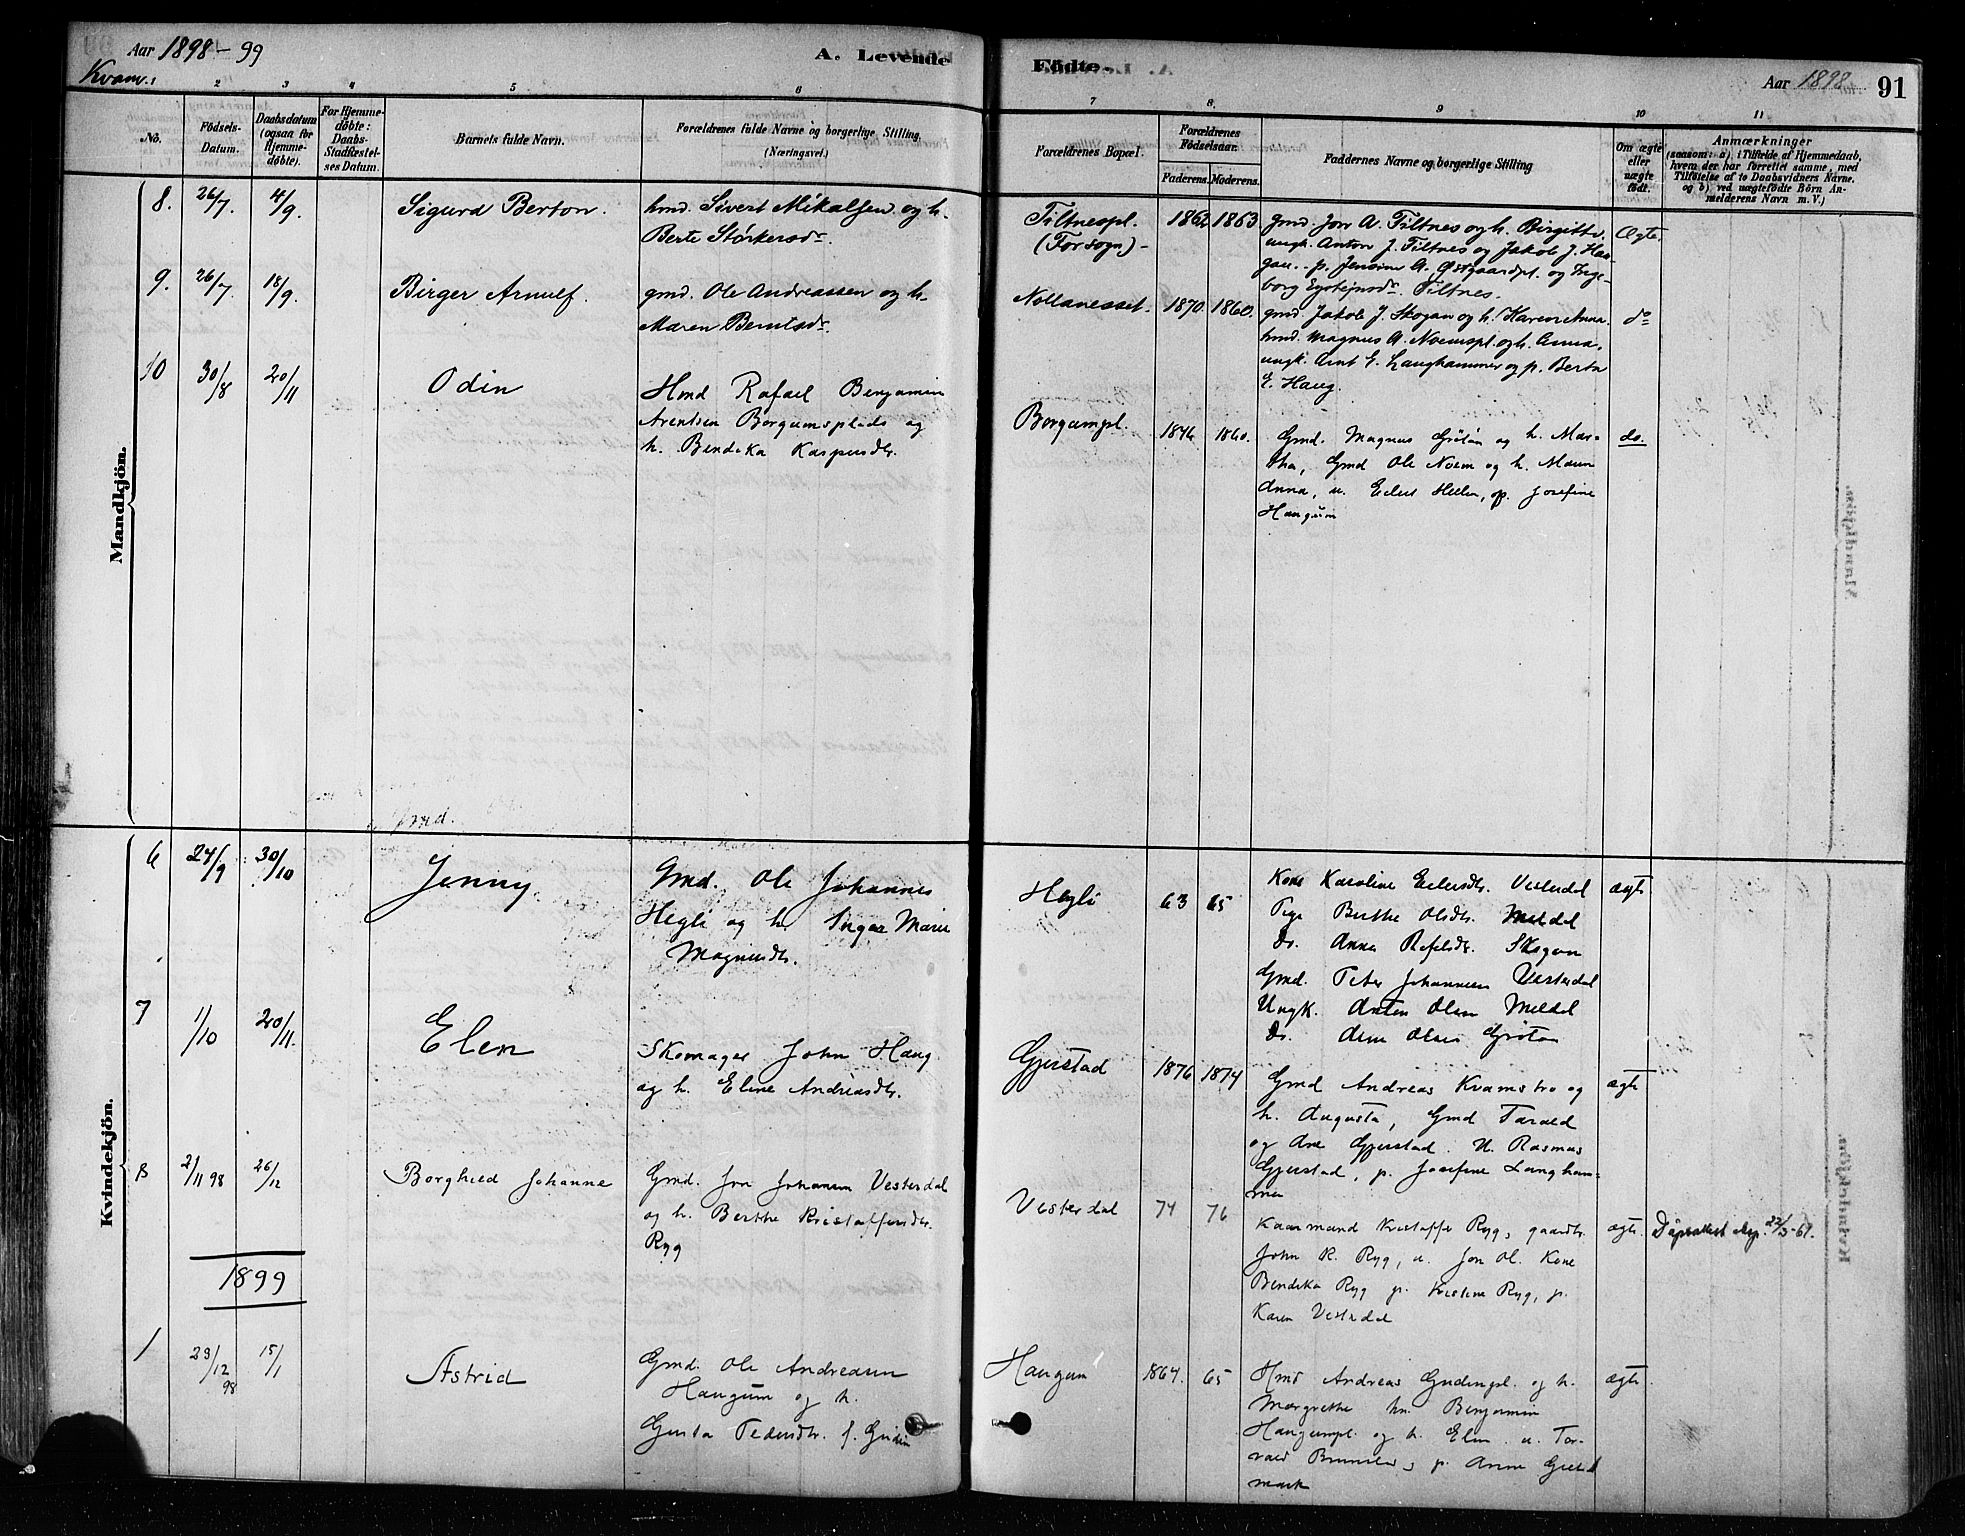 Aar 1898-99
Kvam.
A. Levende
Födte.
Aar 1898
91
1 2 3 4 5 6 7 8 9 10 11
No.
Födsels-
Datum.
Daabsdatum
(ogsaa for
Hjemme-
döbte).
For Hjemme-
döbte:
Daabs-
Stadfæstel-
ses Datum.
Barnets fulde Navn.
Forældrenes fulde Navne og borgerlige Stilling
(Næringsvei.)
Forældrenes Bopæl.
Forældrenes
Födselsaar.
Faderens. Moderens.
Faddernes Navne og borgerlige Stilling
Om ægte
eller
uægte
födt.
Anmærkninger
(saasom: a) i Tilfælde af Hjemmedaab,
hvem der har forrettet samme, med
Tilföielse af to Daabsvidners Navne,
og b) ved uægtefödte Börn An-
melderens Navn m. V.)
Mandkjön.
8. 26/7. 4/9. Sigurd Berton.
hmd. Sivert Mikalsen og h.
Berte Størkersdr.
Tiltnespl.
(For sogn)-
1862 1863
gmd. Jon A. Tiltnes og h. Birgitte.
ungk. Anton J. Tiltnes og Jakob J. Hau-
gan. p. Jensine A. Østgaardpl. og Inge-
borg Eysteinsdr. Tiltnes.
Ægte.
9. 26/7. 18/9. Birger Arnulf.
gmd. Ole Andreassen og h.
Maren Berntsdr.
1870. 1860.
gmd. Jakob J. Skogan og h. Karen Anna.
hmd. Magnus A. Noemspl. og h. Anna.
ungk. Arnt E. Langhammer og p. Berta
E. Haug.
do
10 30/8 20/11 Odin
Hmd Rafael Benjamin
Arentsen Borgumsplads og
h. Bendeka Kaspersdtr.
Borgumpl.
1846 1860.
Gmd. Magnus Grötan og h. Mar-
tha, Gmd Ole Noem og h. Maren
Anna, u. Eilert Heelen, p. Josefine
Haugum
do.
Kvindekjön.
6 24/9 30/10 Jenny.
Gmd. Ole Johannes
Hegli og h. Inger Marie
Magnusdtr.
Hegli 63 65
Kone Karoline Eilersdtr. Vesterdal
Pige Berthe Olsdtr. Meldal
Do. Anna Rafelsdtr. Skogan
Gmd. Peter Johannesen Vesterdal
Ungk. Anton Olsen Meldal
Do. Arne Olsen Grötan
ægte
7 1/10 20/11. Elen
Skomager John Haug
og h. Eline Andreasdtr.
Gjerstad 1876 1874
Gmd Andreas Kvamstro og
h. Augusta, Gmd Tarald
og Ane Gjerstad. U. Rasmus
Gjerstad, p. Josefine Langham-
mer
ægte
8 2/11 98 26/12 Borghild Johanne
Gmd. Jon Johansen Vesterdal
og h. Berthe Kristoffersdtr.
Ryg
Vesterdal 74 76
Kaarmand Kristoffer Ryg, gaardbr.
John K. Ryg, u. Jon Ol. Kone
Bendeka Ryg p. Kristine Ryg, p.
Karen Vesterdal
ægte. Dåpsattest 22/3-61.
1899
1 23/12 98 15/1 Astrid
Gmd. Ole Andreasen
Haugum og h.
Gusta Pedersdtr. f. Gudin
Haugum 1864. 65
Hmd Andreas Gudingpl. og h.
Margrethe hm. Benjamin
Haugumpl. og h. Elen. u. Tor-
vald p. Anna
mark
ægte.